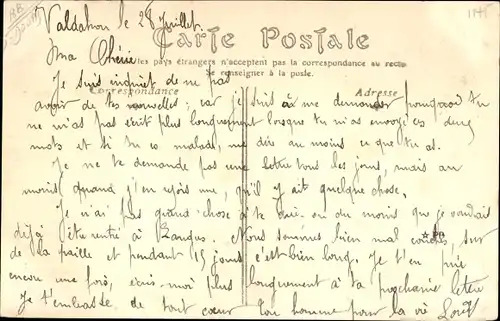 Valdahon le 28 Juillet
Carte Postale
Ma Chérie
les pays étrangers n'acceptent pas la correspondance au recto
Se renseigner à la poste.
Je suis inquiet de ne pas
Correspondance
Adresse
avoir de tes nouvelles, car je suis à me demander pourquoi tu
ne m'as pas écrit plus longuement lorsque tu m'as envoyé ces deux
mots et si tu es malade, me dire au moins ce que tu as.
Je ne te demande pas une lettre tous les jours, mais au
moins quand j'en reçois une, qu'il y ait quelque chose.
Je n'ai pas grand chose à te dire ou du moins que je voudrais
déjà être rentré à Nous sommes bien mal couchés, sur
de la paille et pendant 15 jours c'est bien long. Je t'en prie
encore une fois, écris-moi plus longuement à ta prochaine lettre
Je t'embrasse de tout cœur ton homme pour la vie